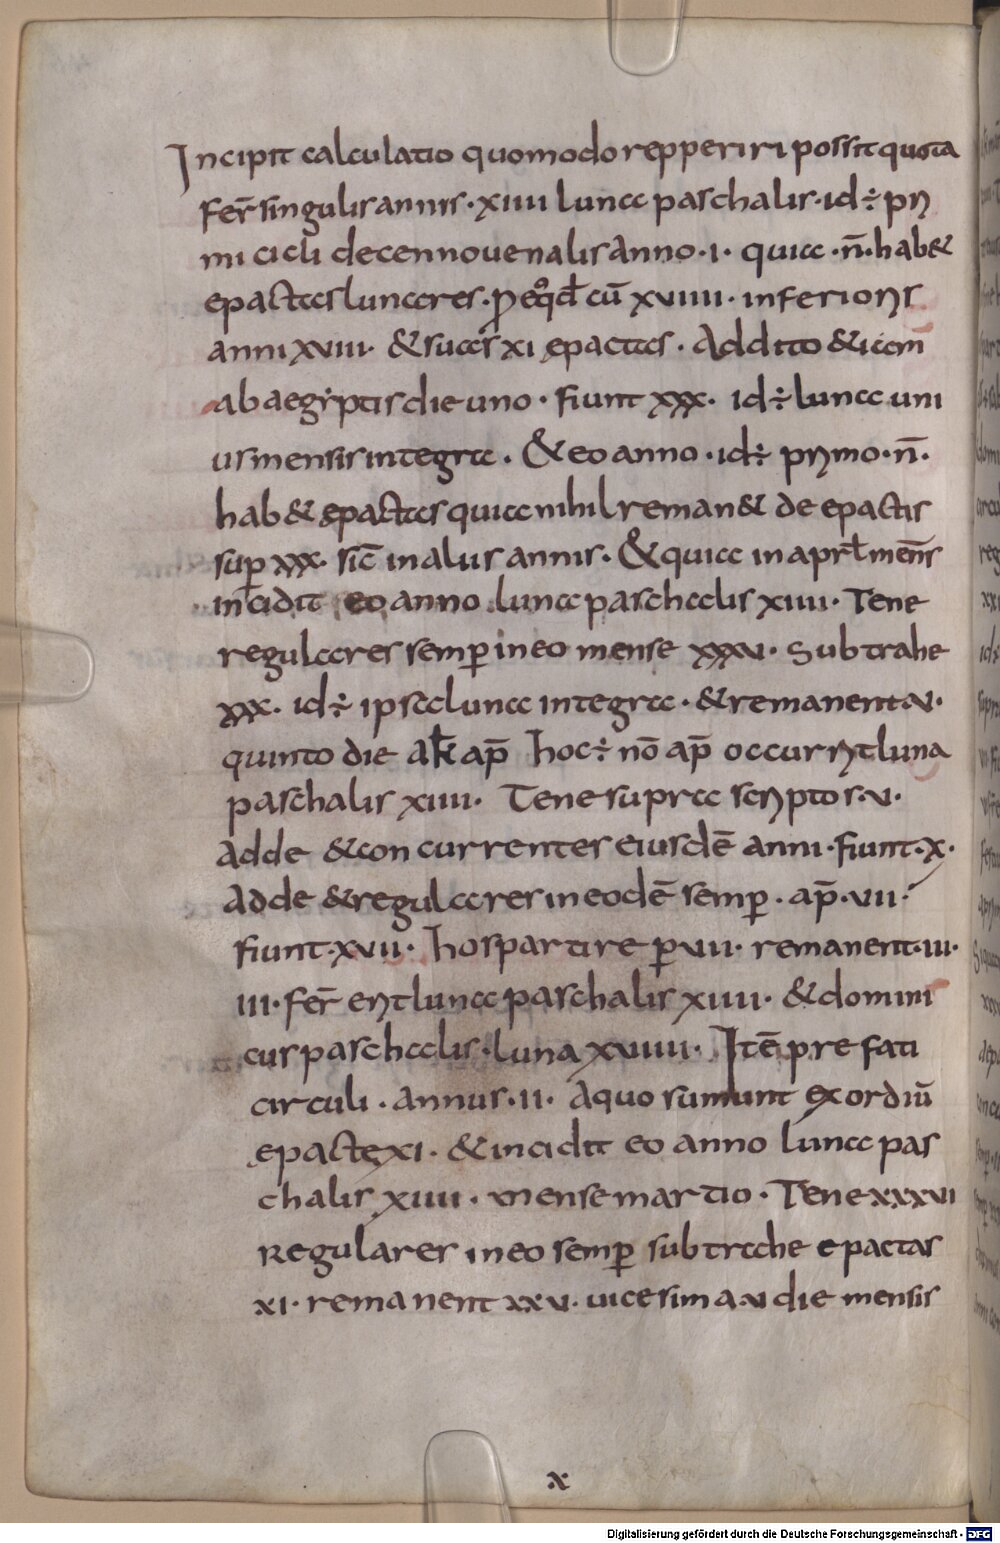 Incipit calculatio quomodo repperiri possit quota
fer̄ singulis annis · xiiii lunae paschalis · id ÷ pri
mi cicli decennouenalis anno · i · quia · n̄ · hab&
epactas lunares · eqd̄ cū xviiii · inferioris
anni xviii · & sucēs xi epactas · Addito & iam
ab aegiptis die uno · fiunt xxx · id ÷ luna uni
us mensis integra · & eo anno · id ÷ primo · n̄ ·
hab& epactas quia nihil reman& de epactis
sup xxx · sic̄ in aliis annis · & quia in aprł men̄s
incidit eo anno luna paschalis xiiii · Tene
regulares semp in eo mense xxxv · Subtrahe
xxx · id ÷ ipsa luna integra · & remanent · v ·
quinto die ak ap̄ hoc ÷ nō ap̄ occurrit luna
paschalis xiiii · Tene supra scriptos · v ·
Adde & concurrentes eiusdē anni · fiunt · x ·
Adde & regulares in eodē semp · ap̄ · vii ·
fiunt · xvii · hos partire p vii · remanent · iii ·
iii · fer̄ erit luna paschalis xiiii · & domini
cus paschalis · luna xviiii · Itē prefati
circuli · annus · ii · A quo sumunt exordiū
epacte xi · & incidit eo anno luna pas
chalis xiiii · mense martio · Tene xxxvi
Regulares in eo semp subtrahe epactas
xi · remanent xxv · uicesima · v die mensis
x
Digitalisierung gefördert durch die Deutsche Forschungsgemeinschaft - DFG